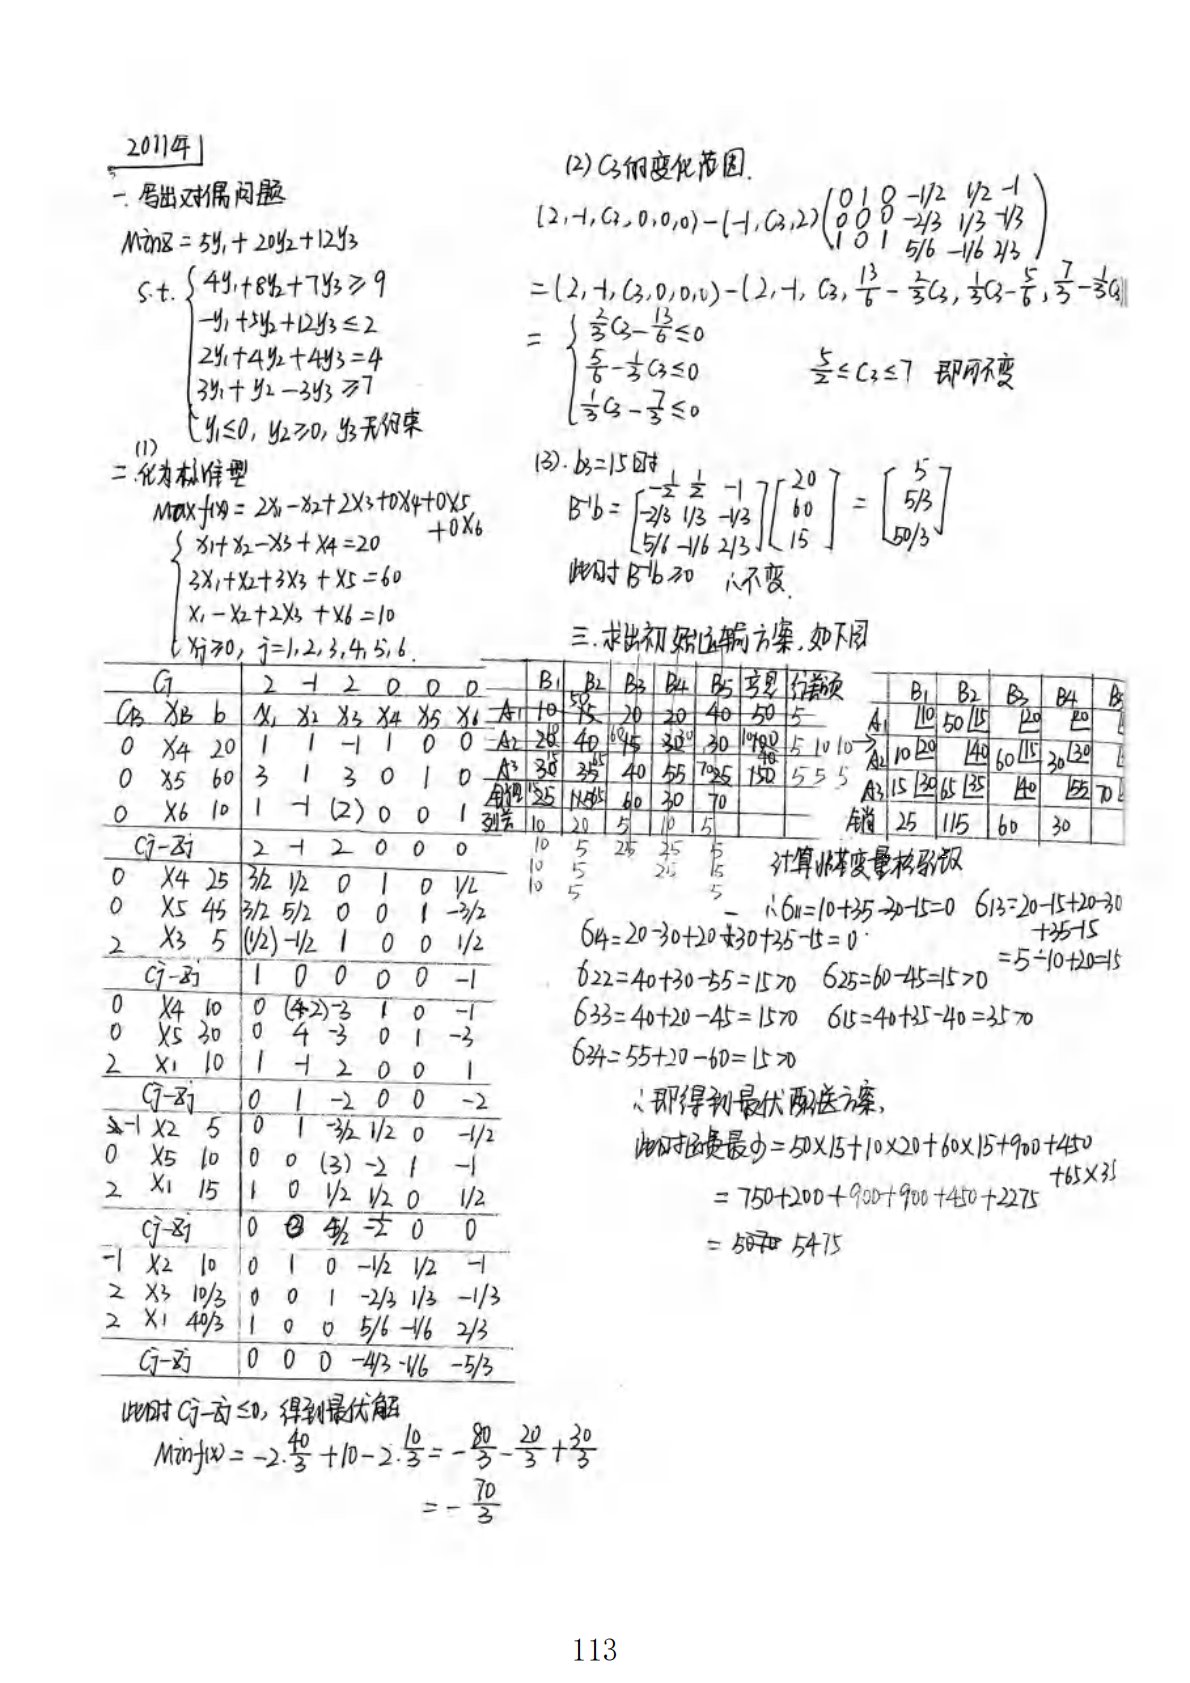 2011年
一. 写出对偶问题
Min Z = 5y1 + 20y2 + 12y3
s.t. 4y1+8y2+7y3 ≥ 9
-y1+5y2+12y3 ≤ 2
2y1+4y2+4y3 = 4
3y1+y2-3y3 ≥ 7
y1≤0, y2≥0, y3无约束
(1)
二. 化为标准型
Max f(x) = 2x1-x2+2x3+0x4+0x5
+0x6
x1+x2-x3+x4=20
3x1+x2+3x3+x5=60
x1-x2+2x3+x6=10
xj≥0, j=1,2,3,4,5,6
Cj 2 -1 2 0 0 0
CB XB b x1 x2 x3 x4 x5 x6
0 x4 20 1 1 -1 1 0 0
0 x5 60 3 1 3 0 1 0
0 x6 10 1 -1 (2) 0 0 1
Cj-Zj 2 -1 2 0 0 0
0 x4 25 3/2 1/2 0 1 0 1/2
0 x5 45 3/2 5/2 0 0 1 -3/2
2 x3 5 (1/2) -1/2 1 0 0 1/2
Cj-Zj 1 0 0 0 0 -1
0 x4 10 0 (2) -3 1 0 -1
0 x5 30 0 4 -3 0 1 -3
2 x1 10 1 -1 2 0 0 1
Cj-Zj 0 1 -2 0 0 -2
-1 x2 5 0 1 -3/2 1/2 0 -1/2
0 x5 10 0 0 (3) -2 1 -1
2 x1 15 1 0 1/2 1/2 0 1/2
Cj-Zj 0 0 -1/2 0 0
-1 x2 10 0 1 0 -1/2 1/2 -1
2 x3 10/3 0 0 1 -2/3 1/3 -1/3
2 x1 40/3 1 0 0 5/6 -1/6 2/3
Cj-Zj 0 0 0 -4/3 -1/6 -5/3
此时Cj-Zj≤0, 得到最优解
Min f(x) = -2·40/3 + 10 - 2·10/3 = -80/3 - 20/3 + 30/3
= -70/3
(2) C3的变化范围.
(2,-1,C3,0,0,0)-(-1,C3,2)(0 1 0 -1/2 1/2 -1
0 0 0 -2/3 1/3 -1/3
1 0 1 5/6 -1/6 2/3)
=(2,-1,C3,0,0,0)-(2,-1,C3,13/6-2/3C3,1/3C3-5/6,7/3-1/3C3)
= 2/3C3-13/6≤0
5/6-1/3C3≤0 5/2≤C3≤7 即可不变
1/3C3-7/3≤0
(3). b3=15时
B-1b = [-1/2 1/2 -1
-2/3 1/3 -1/3
5/6 -1/6 2/3] [20
60
15] = [5
5/3
50/3]
此时B-1b≥0 ∴不变.
三. 求出初始运输方案, 如下图
B1 B2 B3 B4 B5 行差额
A1 10 15 20 20 40 50 5
A2 20 40 15 30 30 100 5 10 10
A3 30 35 40 55 25 150 5 5 5
销 25 115 60 30 70
列差 10 20 5 10 5
10 5 25 25 5
10 5 25 15
10 5 5
B1 B2 B3 B4 B5
A1 10 50 15 20 20
A2 10 20 40 60 15 30 30
A3 15 30 65 35 40 55 70
销 25 115 60 30
计算非基变量检验数
∴б11=10+35-30-15=0 б13=20-15+20-30
+35-15
=5-10+20=15
б14=20-30+20-30+35-15=0
б22=40+30-55=15>0 б25=60-45=15>0
б33=40+20-45=15>0 б15=40+35-40=35>0
б34=55+20-60=15>0
∴即得到最优配送方案,
此时运费最少=50×15+10×20+60×15+900+450
+65×35
=750+200+900+900+450+2275
=5475
113